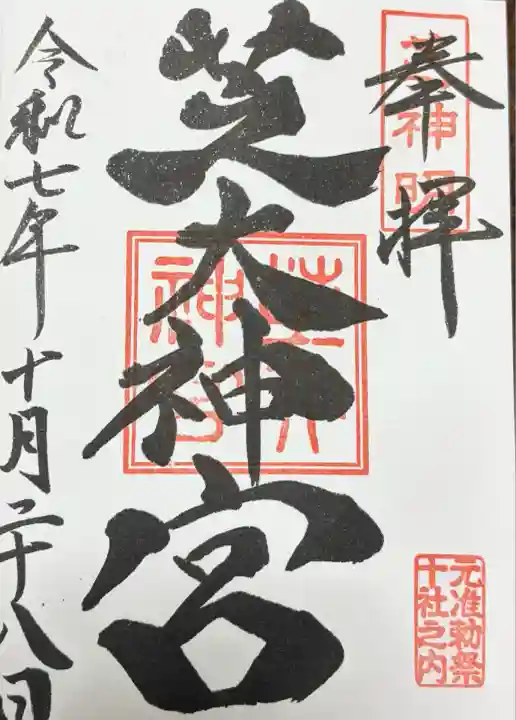 奉拝
芝神明
芝大神宮
芝大神宮
元准勅祭
十社之内
令和七年十月二十八日